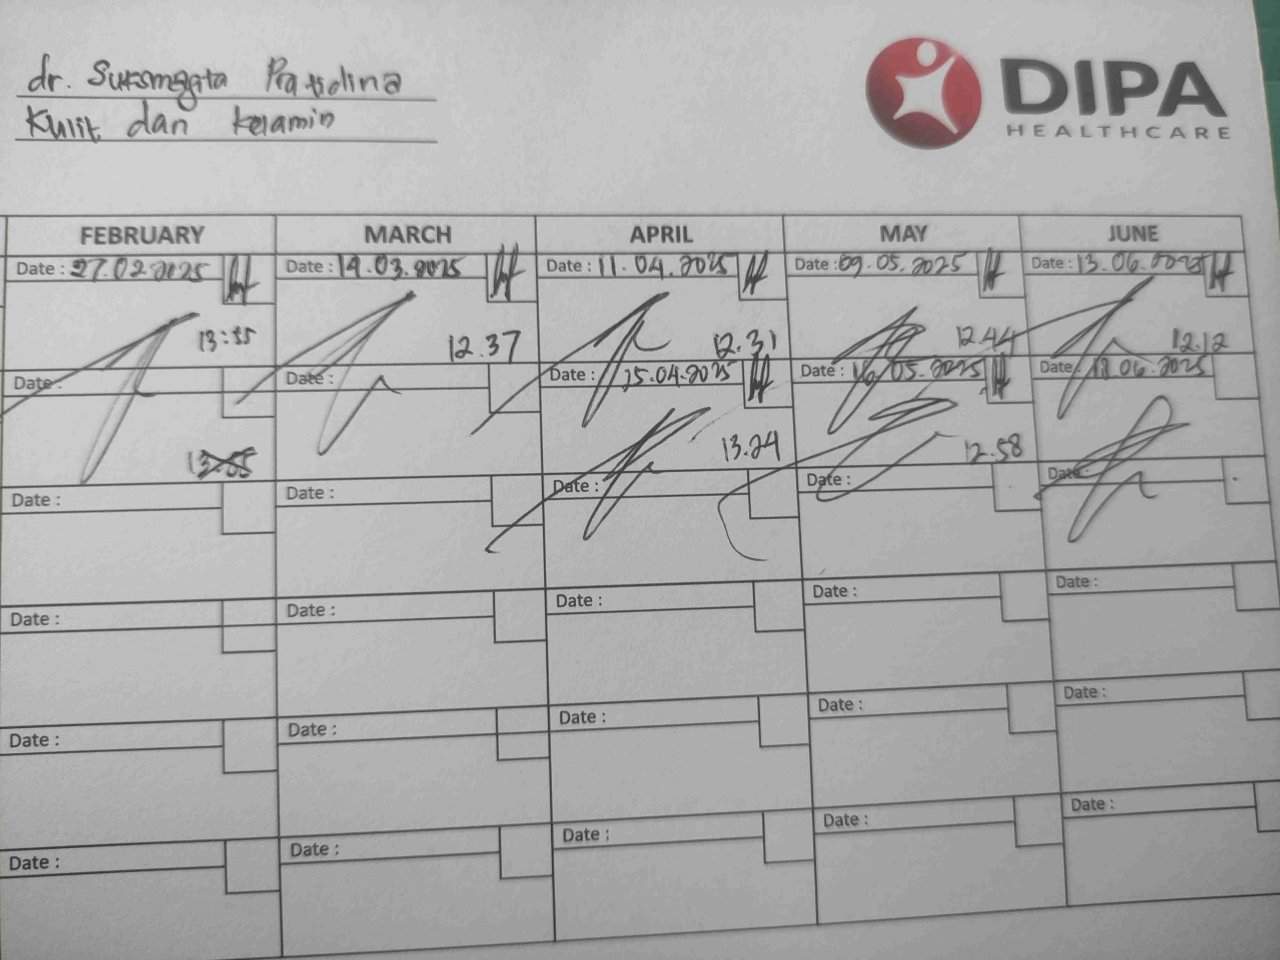 dr. Suksmagita Pratidina
Kulit dan kelamin
DIPA
HEALTHCARE
FEBRUARY MARCH APRIL MAY JUNE
Date : 27.02.2025 Date : 14.03.2025 Date : 11.04.2025 Date : 09.05.2025 Date : 13.06.2025
13:35 12.37 12.31 12.44 12.12
Date : Date : Date : 25.04.2025 Date : 16.05.2025 Date : 18.06.2025
13.24 12.58
Date : Date : Date : Date : Date :
Date : Date : Date : Date : Date :
Date : Date : Date : Date : Date :
Date : Date : Date : Date : Date :